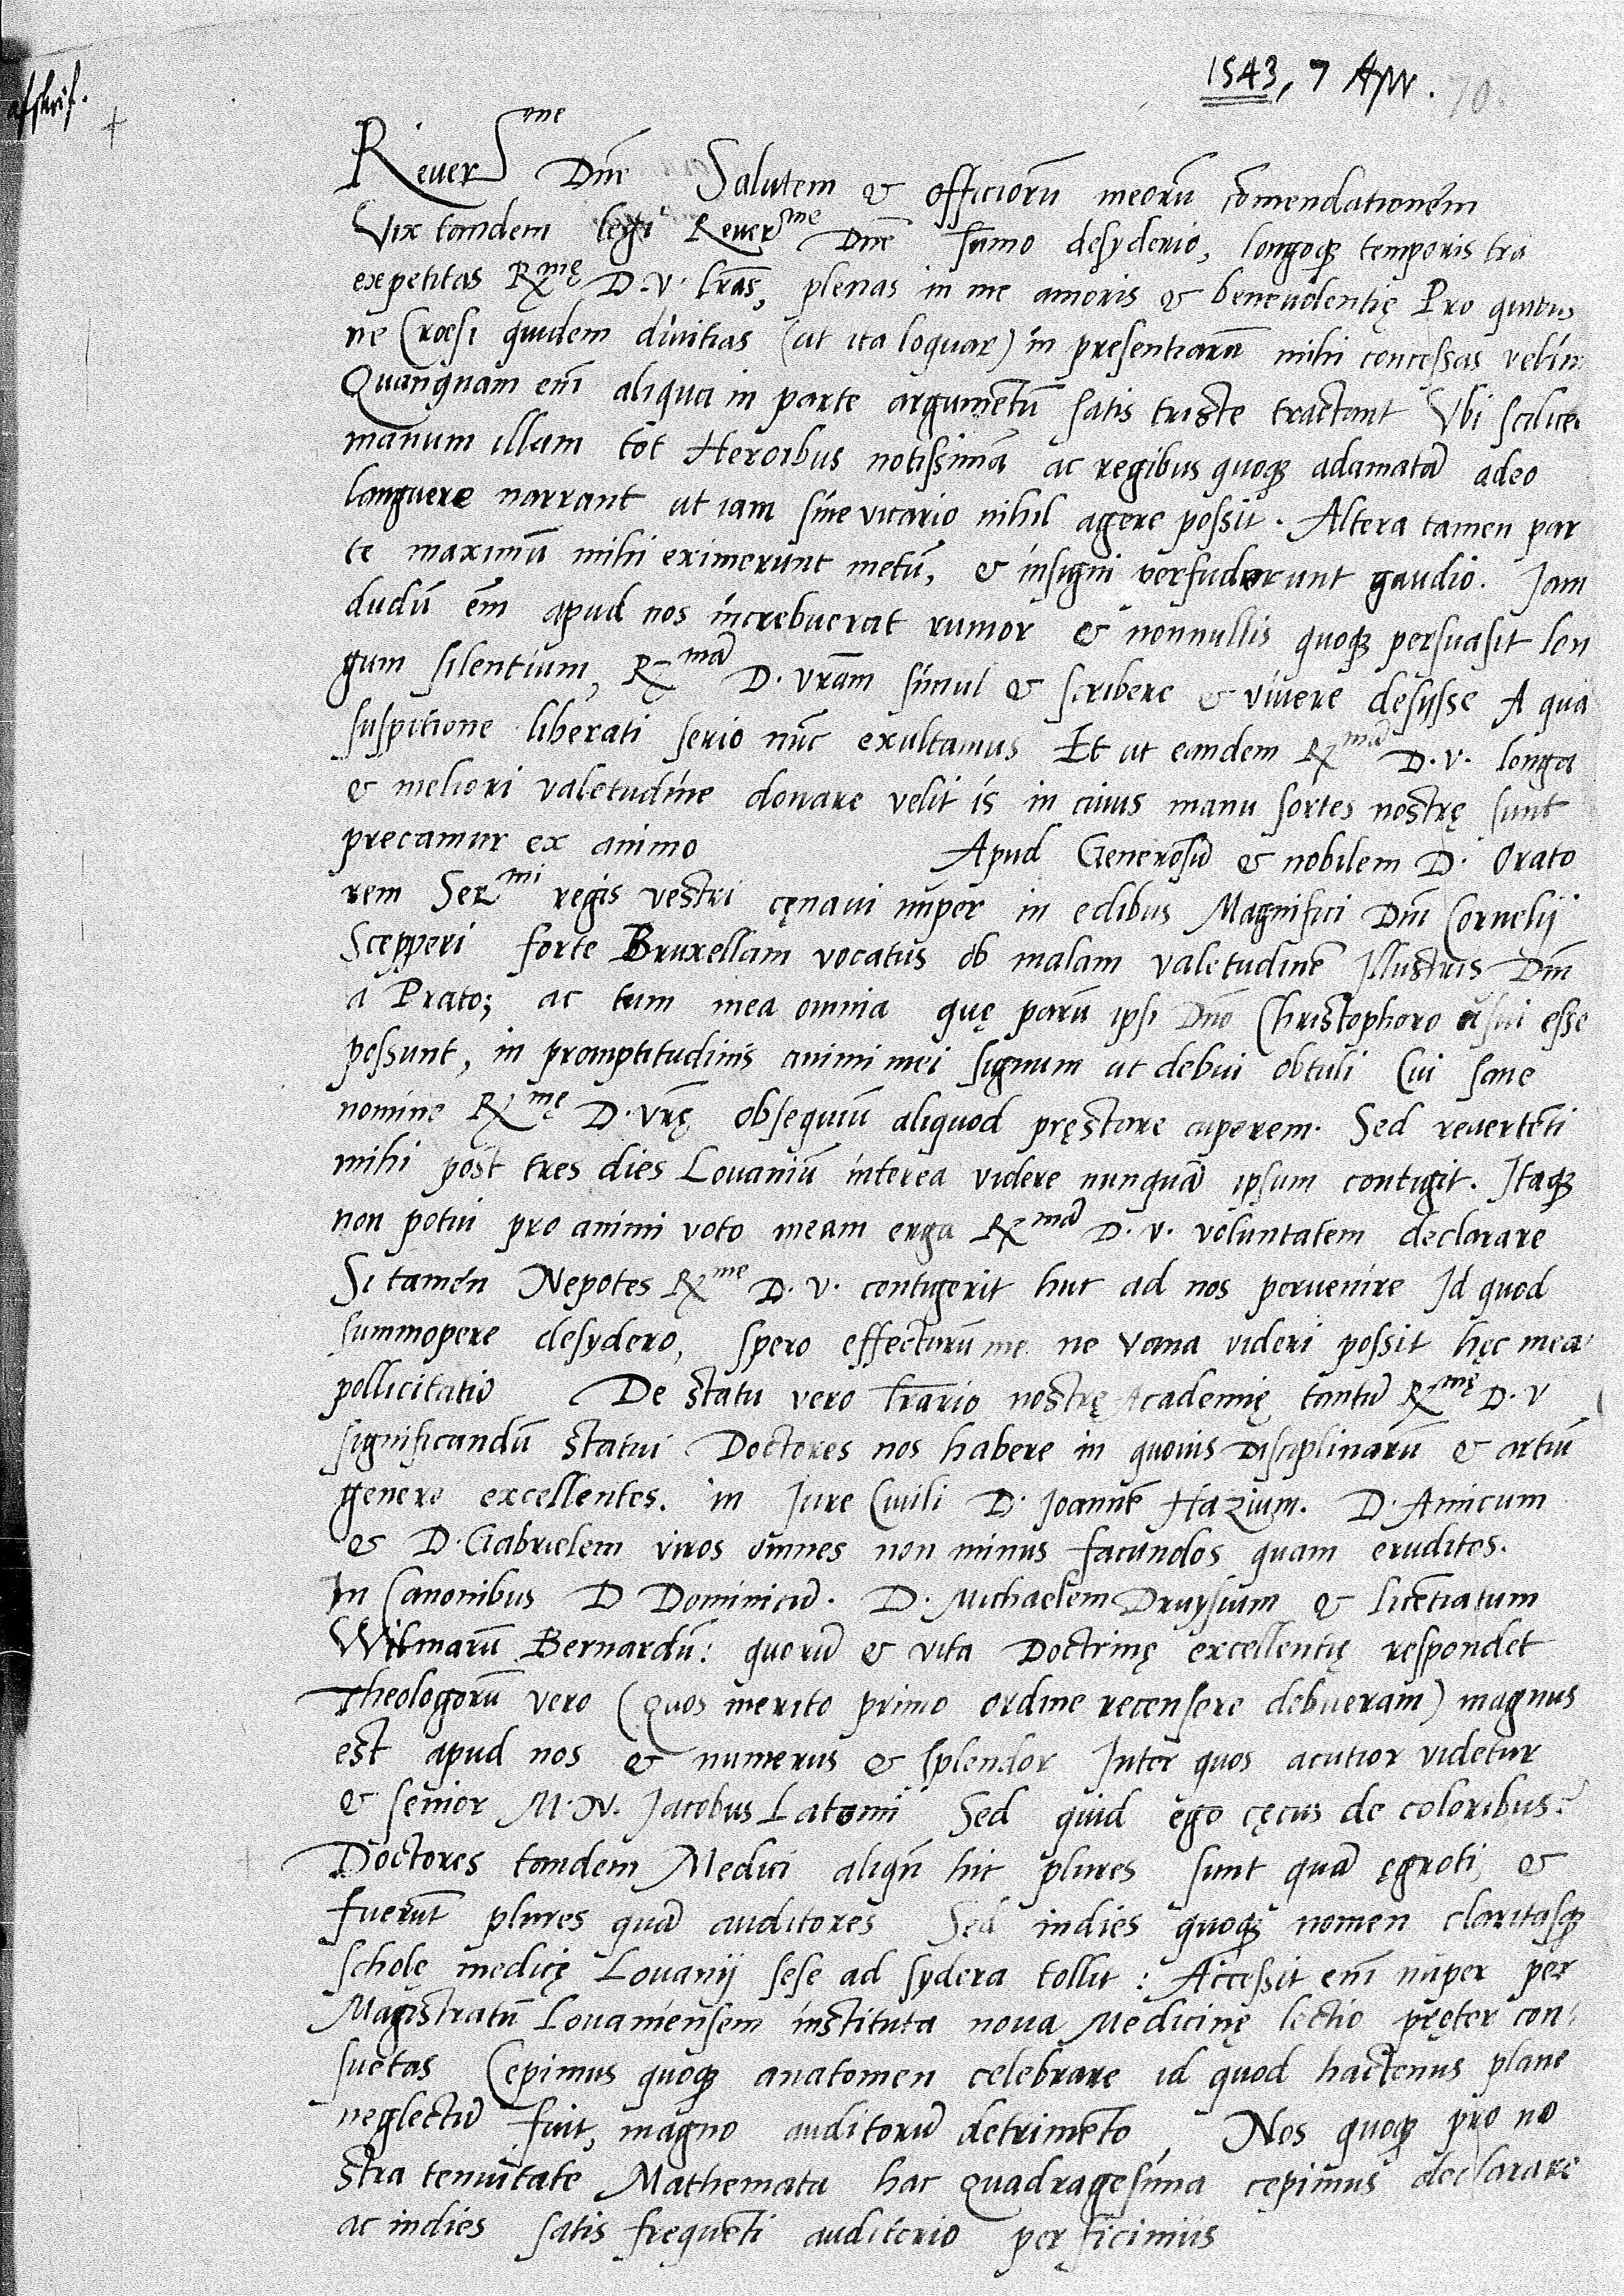 1543, 7 Apr. 70.
afskrif.
Reuer^me Dne Salutem & officiorū meorū cōmendationem
Vix tandem legi Reuer^me Dne sūmo desyderio, longoq; temporis tra
expetitas Rx^mę D. V. lras, plenas in me amoris & beneuolentię Pro quibus
ne Crœsi quidem diuitias (ut ita loquar) in presentiarū mihi concessas velim
Quanquam em̄ aliqua in parte argumentū satis triste tractant Vbi scilicet
manum illam tot Heroibus notissimā ac regibus quoq; adamatā adeo
languere narrant ut iam sine vicario nihil agere possit. Altera tamen par
te maximū mihi exemerunt metū, & insigni perfuderunt gaudio. Jam
dudū em̄ apud nos increbuerat rumor & nonnullis quoq; persuasit lon
gum silentium, Rx^mā D. vram simul & scribere & viuere desysse A qua
suspitione liberati serio nūc exultamus Et ut eandem Rx^mā D. V. longa
& meliori valetudine donare velit is in cuius manu sortes nostrę sunt
precamur ex animo Apud Generosū & nobilem D. Orato
rem Ser^mi regis vestri cęnaui nuper in edibus Magnifici Dni Cornelij
Scepperi forte Bruxellam vocatus ob malam valetudinē Illustris Dni
a Prato; ac tum mea omnia quę parū ipsi Dno Christophoro usui esse
possunt, in promptitudinis animi mei signum ut debui obtuli Cui sane
nomine Rx^mę D. vrę obsequiū aliquod pręstare cuperem. Sed reuertēti
mihi post tres dies Louaniū interea videre nunquā ipsum contigit. Itaq;
non potui pro animi voto meam erga Rx^mā D. V. voluntatem declarare
Si tamen Nepotes Rx^me D. V. contigerit huc ad nos peruenire Id quod
summopere desydero, spero effecturū me ne vana videri possit hęc mea
pollicitatio De statu vero lrario nostrę Academię tantū Rx^mę D. V
significandū statui Doctores nos habere in quouis disciplinarū & artiū
genere excellentes. in Jure Ciuili D. Joannē Hazium. D. Amicum
& D. Gabrielem viros omnes non minus facundos quam eruditos.
In Canonibus D Dominicū. D. Michaelem Druysium & licētiatum
Wilmarū Bernardū: quorū & vita Doctrinę excellentię respondet
Theologorū vero (quos merito primo ordine recensere debueram) magnus
est apud nos & numerus & splendor Inter quos acutior videtur
& senior M. N. Jacobus Latomi Sed quid ego cęcus de coloribus?
Doctores tandem Medici aliqn̄ hic plures sunt quā ęgroti, &
fuerūt plures quā auditores Sed indies quoq; nomen claritasq;
scholę medicę Louanij sese ad sydera tollit: Accessit em̄ nuper per
Magistratū Louaniensem instituta noua Medicinę lectio pręter con-
suetas Cepimus quoq; anatomen celebrare id quod hactenus plane
neglectū fuit, magno auditorū detrimento, Nos quoq; pro no
stra tenuitate Mathemata hac Quadragesima cępimus declarare
ac indies satis frequēti auditorio perficimus